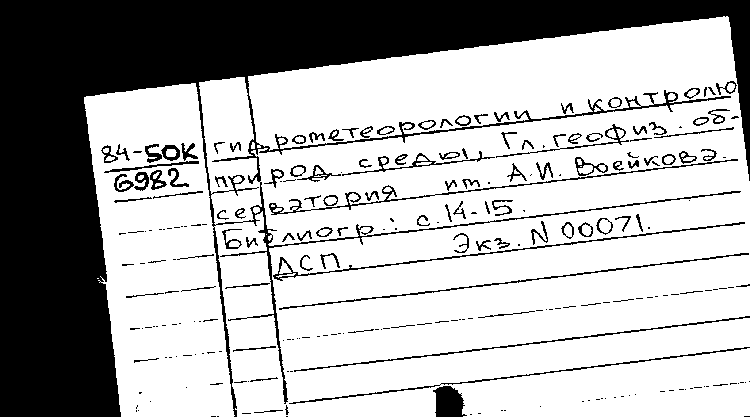 84-5ОК гидрометеорологии и контролю
6982 природ. среды, Гл. геофиз. об-
серватория им. А.И. Воейкова.
Библиогр.: с. 14-15.
ДСП. Экз. N 00071.